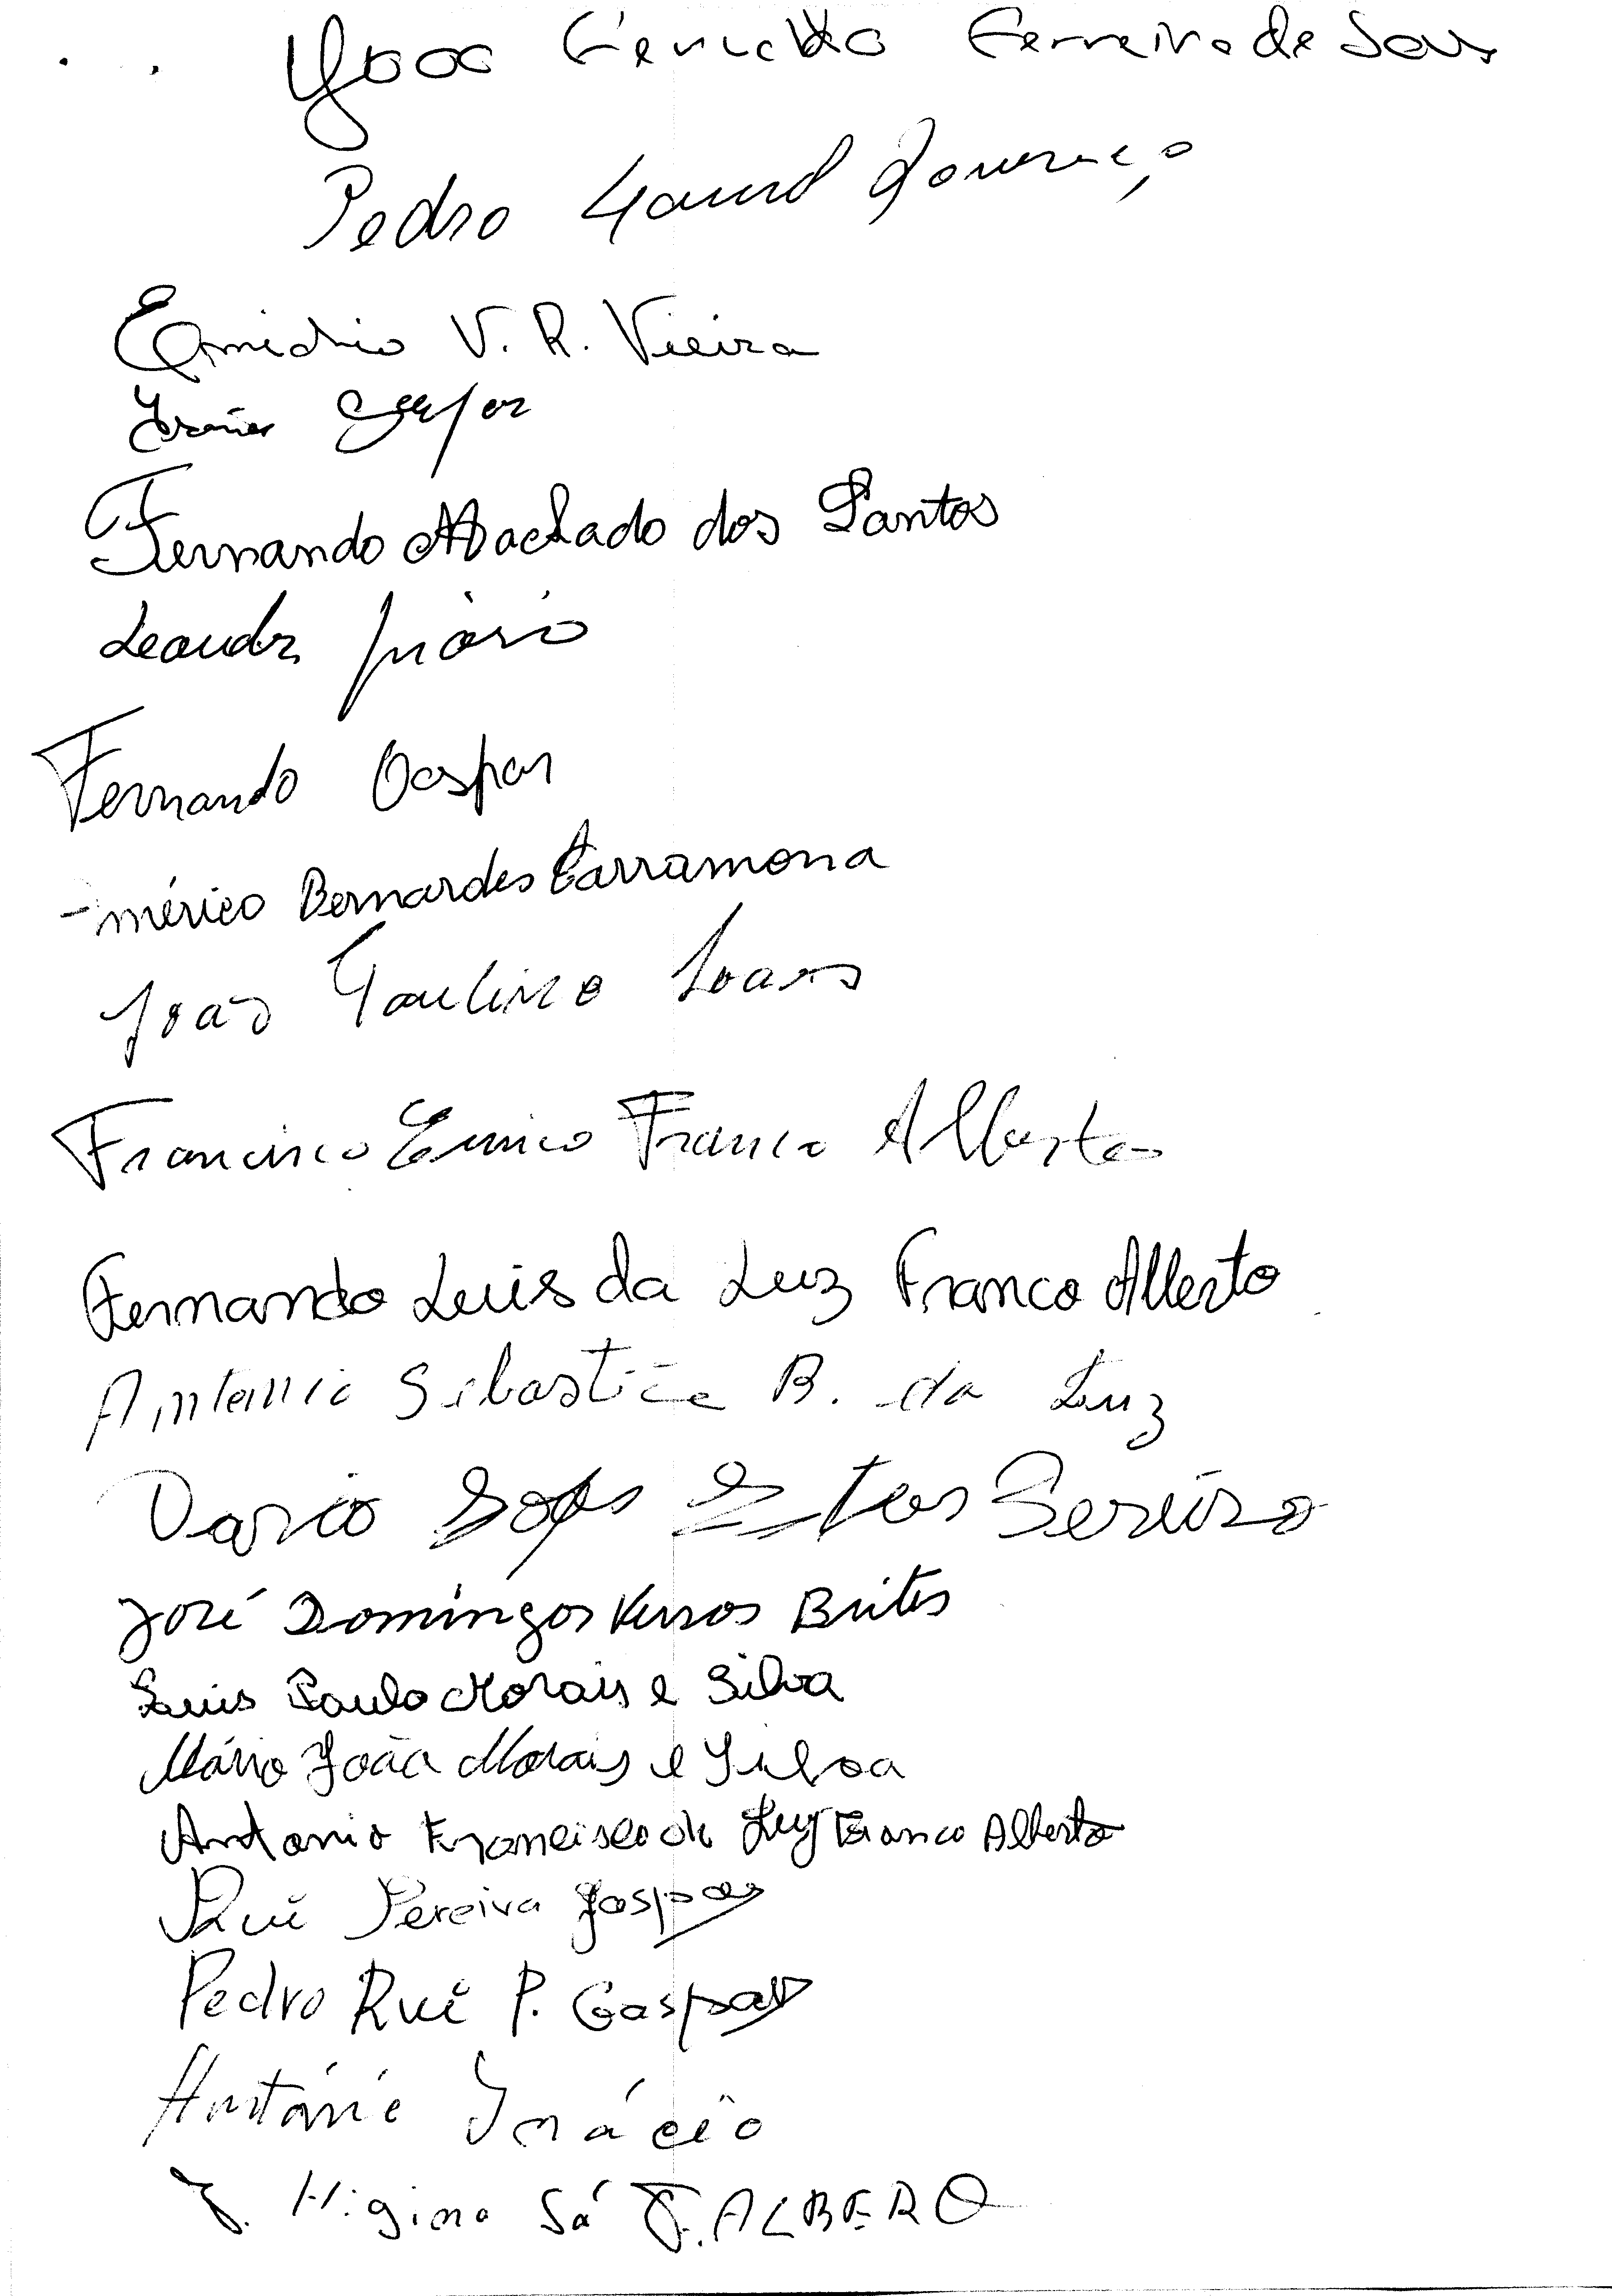 Ferreira de
Pedro Lourenço
Emidio V. R. Vieira
Fernando Machado dos Santos
Leandro
Fernando Gaspar
Américo Bernardes Carramona
João Paulino Soares
Francisco Franco Alberto
Fernando Luis da Luz Franco Alberto
Antonio Sebastião B. da Luz
Dario Lopes
José Domingos Brites
Luis Paulo Morais e Silva
Mário João Morais e Silva
Antonio Francisco da Luz Franco Alberto
Rui Pereira Gaspar
Pedro Rui P. Gaspar
António Inácio
J. Higino Sá F. ALBERO